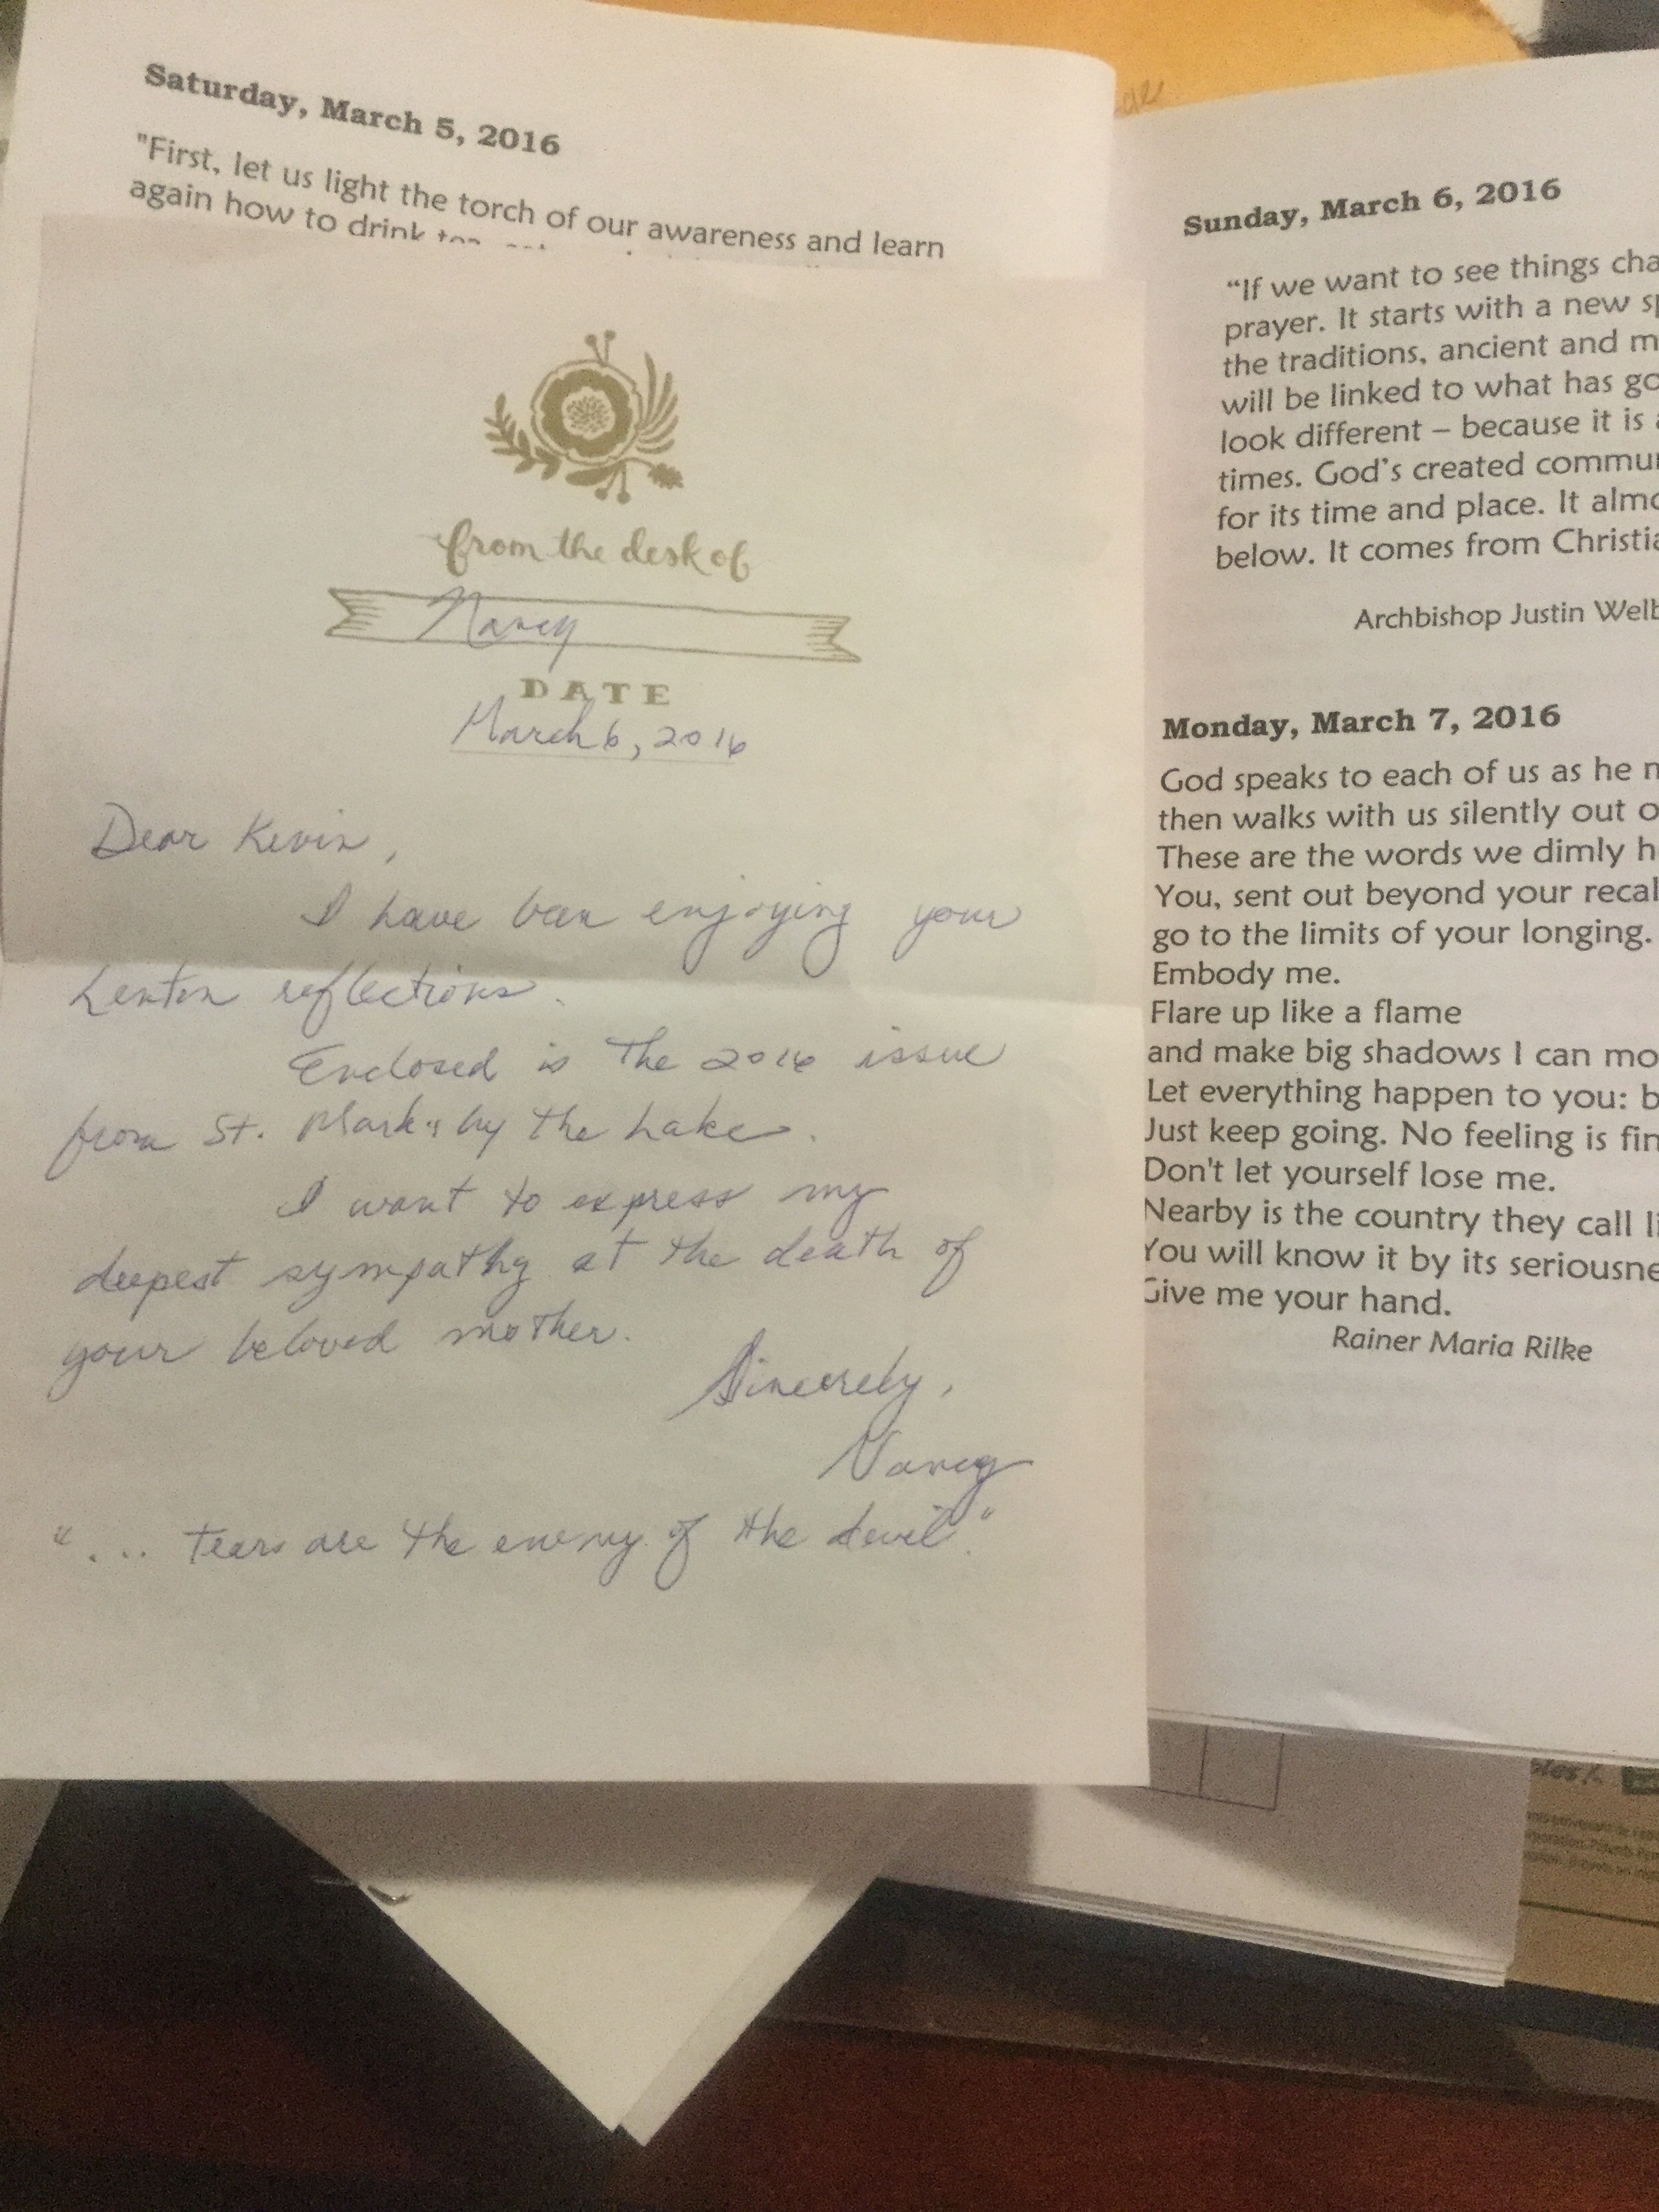 Saturday, March 5, 2016
"First, let us light the torch of our awareness and learn
again how to drink
from the desk of
Nancy
DATE
March 6, 2016
Dear Kevin,
I have been enjoying your
Lenten reflections.
Enclosed is the 2016 issue
from St. Mark's by the Lake.
I want to express my
deepest sympathy at the death of
your beloved mother.
Sincerely,
Nancy
"... tears are the enemy of the devil."
Sunday, March 6, 2016
"If we want to see things cha
prayer. It starts with a new sp
the traditions, ancient and m
will be linked to what has go
look different – because it is a
times. God's created commun
for its time and place. It almo
below. It comes from Christia
Archbishop Justin Welb
Monday, March 7, 2016
God speaks to each of us as he m
then walks with us silently out o
These are the words we dimly h
You, sent out beyond your recal
go to the limits of your longing.
Embody me.
Flare up like a flame
and make big shadows I can mo
Let everything happen to you: b
Just keep going. No feeling is fin
Don't let yourself lose me.
Nearby is the country they call li
You will know it by its seriousne
Give me your hand.
Rainer Maria Rilke